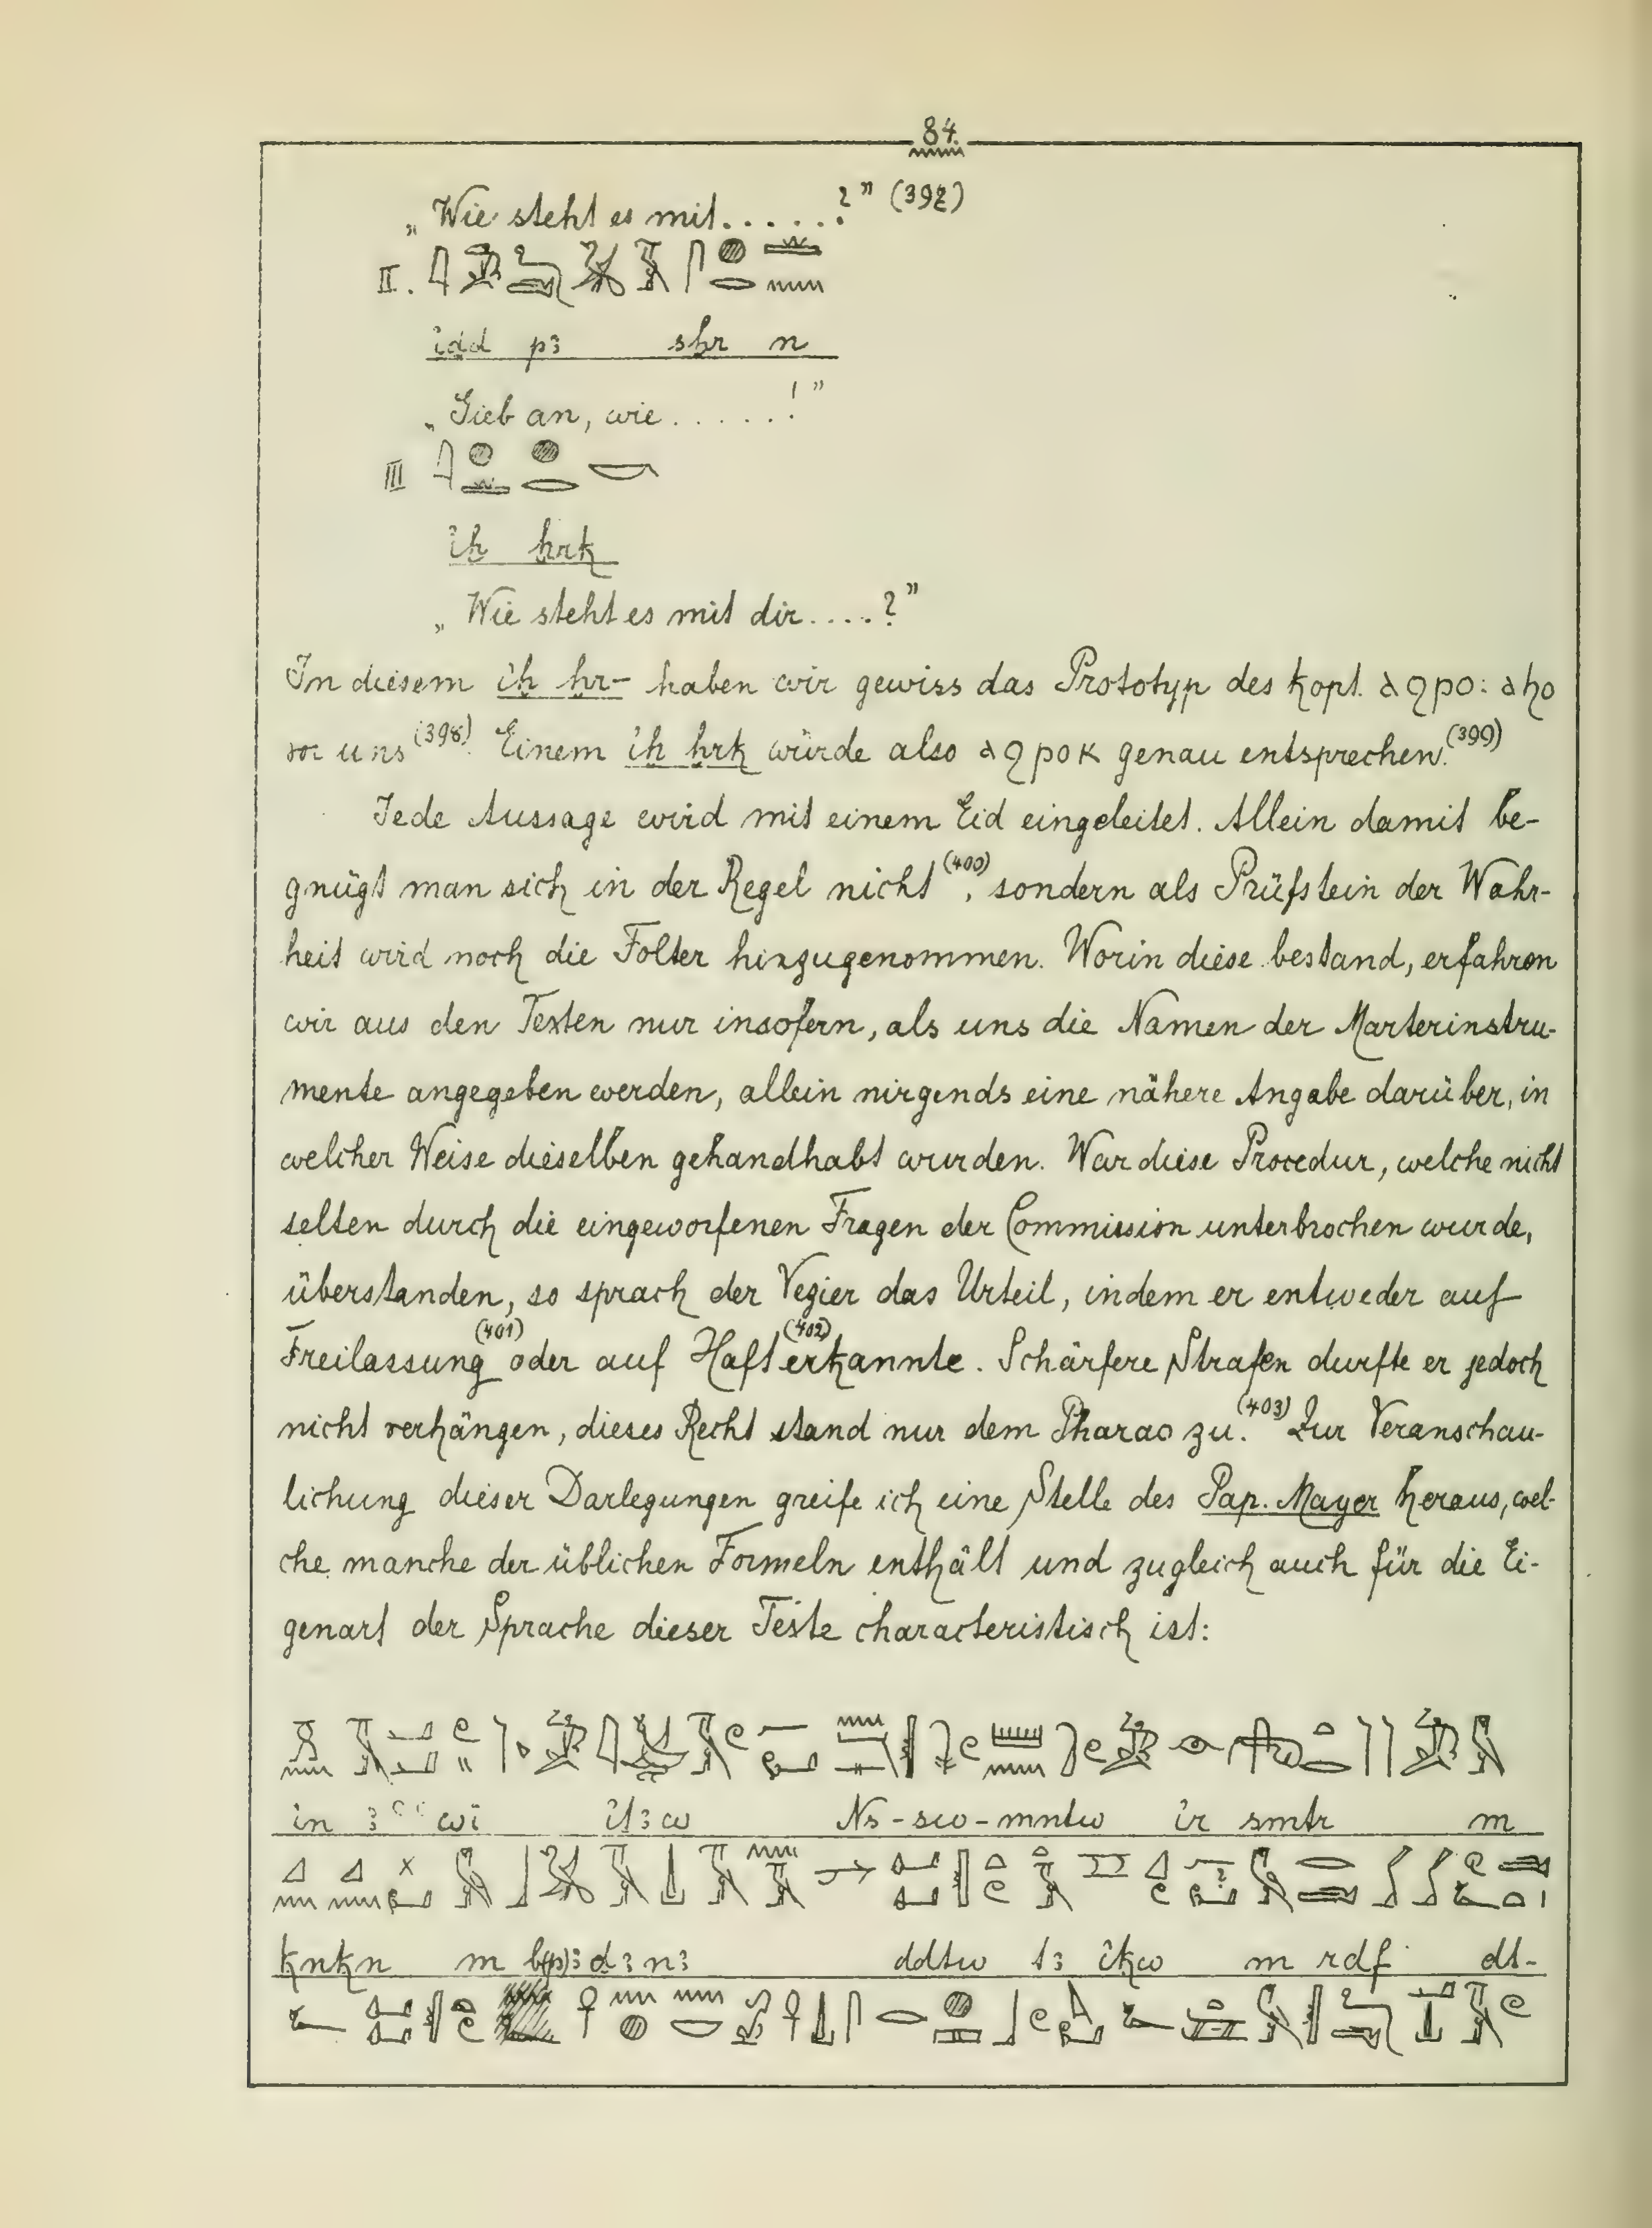 84.
„Wie steht es mit......?” (397)
II.
idd p3 sḫr n
„Gieb an, wie......!”
III
iḫ ḫrk
„Wie steht es mit dir.....?”
In diesem iḫ ḫr- haben wir gewiss das Prototyp des kopt. ⲁϩⲣⲟ: ⲁϧⲟ
vor uns (398). Einem iḫ ḫrk würde also ⲁϩⲣⲟⲕ genau entsprechen. (399)
Jede Aussage wird mit einem Eid eingeleitet. Allein damit be-
gnügt man sich in der Regel nicht (400), sondern als Prüfstein der Wahr-
heit wird noch die Folter hinzugenommen. Worin diese bestand, erfahren
wir aus den Texten nur insofern, als uns die Namen der Marterinstru-
mente angegeben werden, allein nirgends eine nähere Angabe darüber, in
welcher Weise dieselben gehandhabt wurden. War diese Procedur, welche nicht
selten durch die eingeworfenen Fragen der Commission unterbrochen wurde,
überstanden, so sprach der Vezier das Urteil, indem er entweder auf
Freilassung (401) oder auf Haft (402) erkannte. Schärfere Strafen durfte er jedoch
nicht verhängen, dieses Recht stand nur dem Pharao zu. (403) Zur Veranschau-
lichung dieser Darlegungen greife ich eine Stelle des Pap. Mayer heraus, wel-
che manche der üblichen Formeln enthält und zugleich auch für die Ei-
genart der Sprache dieser Texte characteristisch ist:
in 3ʿʿwï it3w Ns-sw-mntw ir smtr m
knkn m b(p)3d3n3 ddtw t3 iḳw m rdf dt-